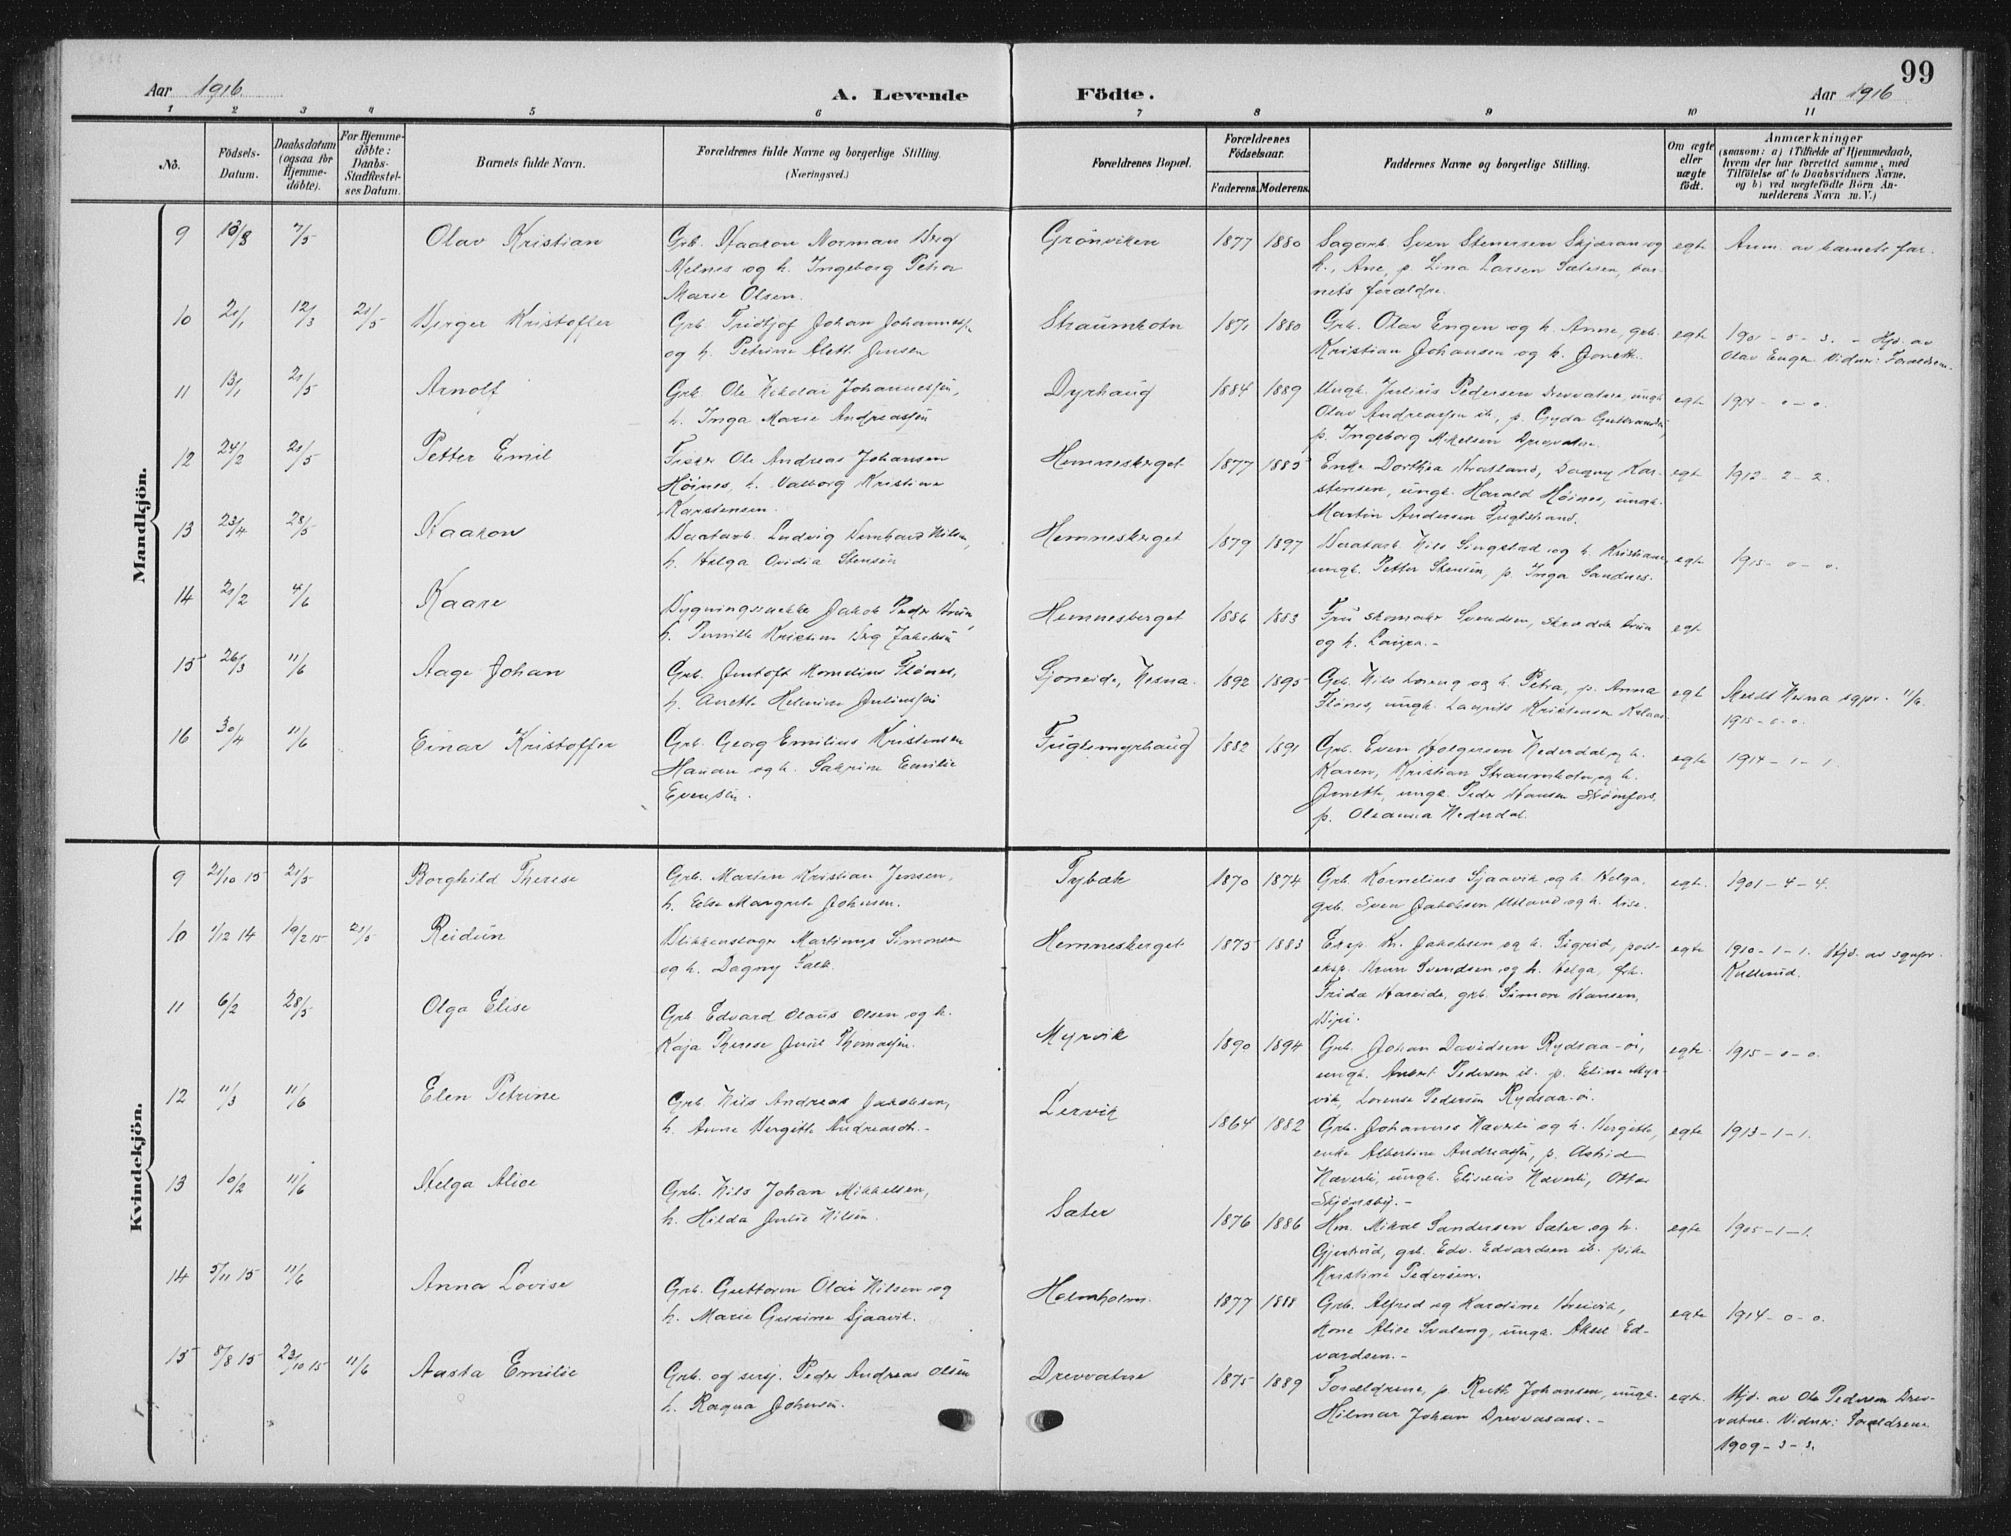 99
Aar 1916
A. Levende
Födte.
Aar 1916
1 2 3 4 5 6 7 8 9 10 11
No.
Födsels-
Datum.
Daabsdatum
(ogsaa for
Hjemme-
döbte).
For Hjemme-
döbte:
Daabs-
Stadfæstel-
ses Datum.
Barnets fulde Navn.
Forældrenes fulde Navne og borgerlige Stilling.
(Næringsvei.)
Forældrenes Bopæl.
Forældrenes
Födselsaar.
Faderens. Moderens.
Faddernes Navne og borgerlige Stilling.
Om ægte
eller
uægte
födt.
Anmærkninger
(saasom: a) i Tilfælde af Hjemmedaab,
hvem der har forrettet samme, med
Tilföielse af to Daabsvidners Navne.
og b) ved uægtefödte Börn An-
melderens Navn m. V.)
Mandkjön.
9 7/5 Olav Kristian
Grb. Haakon Norman Berg
Melnes og h. Ingeborg Petra
Marie Olsen.
Grönviken 1877 1880
Sagarb. Sven Stenersen Skjæran og
h., Ane, p. Lina Larsen Sætesen, bar-
nets forældre.
egte Anm. av barnets far.
10 21/1 12/3 21/5 Birger Kristoffer
Grb. Fridtjof Johan Johanness.
og h. Petrine Alett Jensen
Straumbotn 1871 1880
Grb. Olav Engen og h. Anne, grb.
Kristian Johansen og h. Jonette.
egte 1901 - 5 - 3. - Hjd. av
Olav Engen. Vidner: Forældrene.
11 13/1 21/5 Arnolf
Grb. Ole Nikolai Johannessen,
h. Inga Marie Andreassen
Dyrhaug 1884 1889
Ungk. Julius Pedersen Drevvatne, ungk.
Olav Andreassen ib., p. Gyda Gulbrandsen,
p. Ingeborg Mikelsen Drevvatne.
egte 1914 - 0 - 0.
12 24/2 21/5 Petter Emil
Fisker Ole Andreas Johansen
Höines, h. Valborg Kristine
Karstensen.
Hemnesberget 1877 1885
Enke Dorthea Bratland, Dagny Kar-
stensen, ungk. Harald Höines, ungk.
Martin Andersen Fuglstrand.
egt 1912 - 2 - 2.
13 23/4 28/5 Haakon
Baatarb. Ludvig Bernhard Nilsen,
h. Helga Ovidia Stensen
Hemnesberget 1879 1897
Baatarb. Nils Singstad og h. Kristiane,
ungk. Petter Stensen, p. Inga Sandnes.
egte 1915 - 0 - 0.
14 21/2 4/6 Kaare
Bygningssnekker Jakob Peder Bruun,
h. Pernille Kristine Berg Jakobsen
Hemnesberget 1886 1883
Fru skomaker Svendsen, skrædder Bruun
og h. Laura. -
egt
15 26/3 11/6 Aage Johan
Grb. Jentoft Kornelius Flönes,
h. Anette Helmine Juliussen
Sjoneide, Nesna. 1892 1895
Grb. Nils Loreng og h. Petra, p. Anna
Flönes, ungk. Laurits Kristensen
egt Meldt Nesna sgpr. 11/6.
1915 - 0 - 0.
16 30/4 11/6 Einar Kristoffer
Grb. Georg Emilius Kristensen
Hauan og h. Sabrine Emilie
Evensen.
Fuglemyrhaug 1882 1891
Grb. Even Holgersen Nederdal og h.
Karen, Kristian Straumbotn og h.
Jonette, ungk. Peder Hansen Strömfors,
p. Oleanna Nederdal.
egte 1914 - 1 - 1.
Kvindekjön.
9 21/10 15 21/5 Borghild Therese
Grb. Martin Kristian Jensen,
h. Else Margrete Johnsen.
Tybæk 1870 1874
Grb. Kornelius Sjaavik og h. Helga,
grb. Sven Jakobsen Utland og h. Lise.
egte. 1901 - 4 - 4.
10 1/12 14 19/2 15 21/5 Reidun
Blikkenslager Martinus Simonsen
og h. Dagny Falk.
Hemnesberget 1875 1883
Exsp. Kr. Jakobsen og h. Sigrid, post-
eksp. Brun Svendsen og h. Helga, frk.
Frida Hareide, grb. Simon Hansen,
egte 1910 - 1 - 1. Hjd. av sgnpr.
11 6/2 28/5 Olga Elise
Grb. Edvard Olaus Olsen og h.
Kaja Therese Juul Thomassen.
Myrvik 1890 1894
Grb. Johan Davidsen Rydsaa-öi,
ungk. Anbert Pedersen ib. p. Eline Myr-
vik, Lorense Pedersen Rydsaa-öi.
egte. 1915 - 0 - 0.
12 11/3 11/6 Elen Petrine
Grb. Nils Andreas Jakobsen,
h. Anne Bergitte Andreasdt. -
Lervik 1864 1882
Grb. Johannes Næverli og h. Bergitte,
enke Albertine Andreassen, p. Astrid
Næverli, ungk. Eliseus Næverli, Otto
egte 1913 - 1 - 1.
13 10/2 11/6 Helga Alice
Grb. Nils Johan Mikkelsen,
h. Hilda Julie Nilsen.
Sæter 1876 1886
Hm. Mikal Sandersen Sæter og h.
Gjertrud, grb. Edv. Edvardsen ib. pike
Kristine Pedersen.
egte 1905 - 1 - 1.
14 5/11 15 11/6 Anna Lovise
Grb. Guttorm Olai Nilsen og
h. Marie Gurine Sjaavik.
Holmholm. 1877 1888
Grb. Alfred og Karoline Breivik,
kone Alice Svaleng, ungk. Aksel Ed-
vardsen. -
egte 1914 - 0 - 0.
15 8/8 15 23/10 15 11/6 Aasta Emilie
Grb. og sersj. Peder Andreas Olsen
h. Ragna Johnsen.
Drevvatne 1875 1889
Forældrene, p. Ruth Johansen, ungk.
Hilmar Johan Drevvasaas. -
egte. Hjd. av Ole Pedersen Drev-
vatne. Vidner: Forældrene
1909 - 3 - 3.